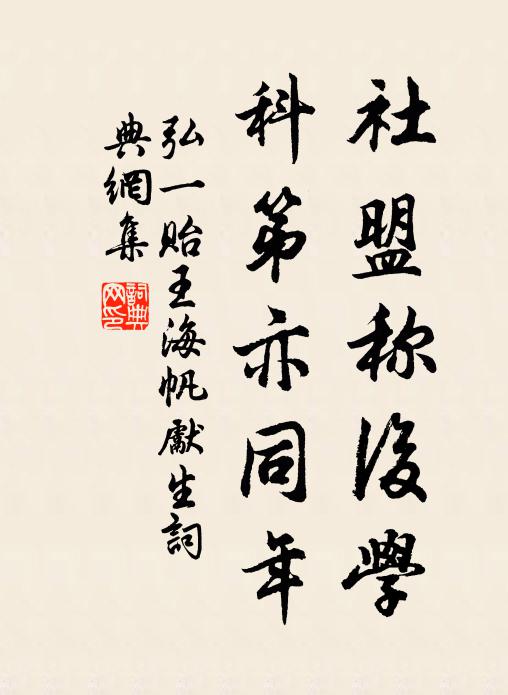 社盟称後學
科第亦同年
弘一貽王海帆獻生詞
典網集
詞典网印